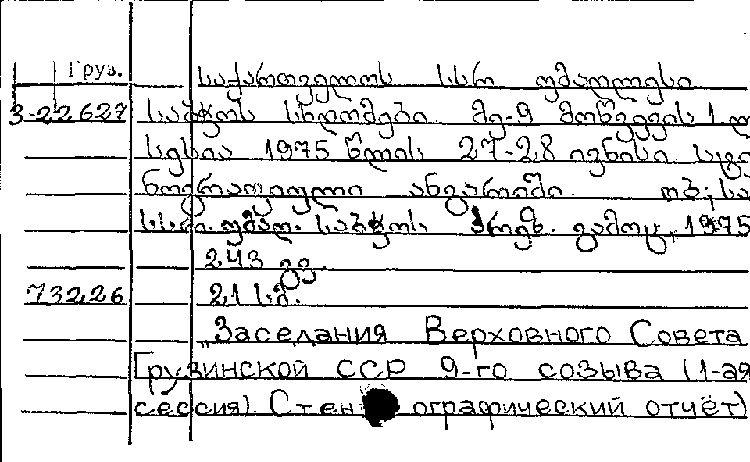 Груз.
საქართველოს სსრ უმაღლესი
3-22627 საბჭოს სხდომები მე-9 მოწვევის 1
სესია 1975 წლის 27-28 ივნისი სტე
ნოგრაფიული ანგარიში თბ; სა
უმაღ. საბჭოს პრეზ. გამოც, 1975
243 გვ.
73226 21 სმ.
„Заседания Верховного Совета
Грузинской ССР 9-го созыва (1-ая
сессия) Стенографический отчёт)